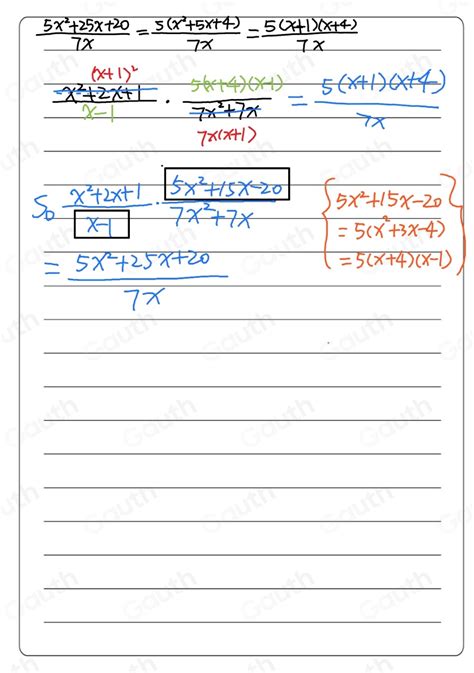 5x²+25x+20/7x = 5(x²+5x+4)/7x = 5(x+1)(x+4)/7x
(x+1)²
x²+2x+1/x-1 · 5(x+4)(x-1)/7x²+7x = 5(x+1)(x+4)/7x
7x(x+1)
So x²+2x+1/x-1 · 5x²+15x-20/7x²+7x
= 5x²+25x+20/7x
{5x²+15x-20
= 5(x²+3x-4)
= 5(x+4)(x-1)}
Gauth